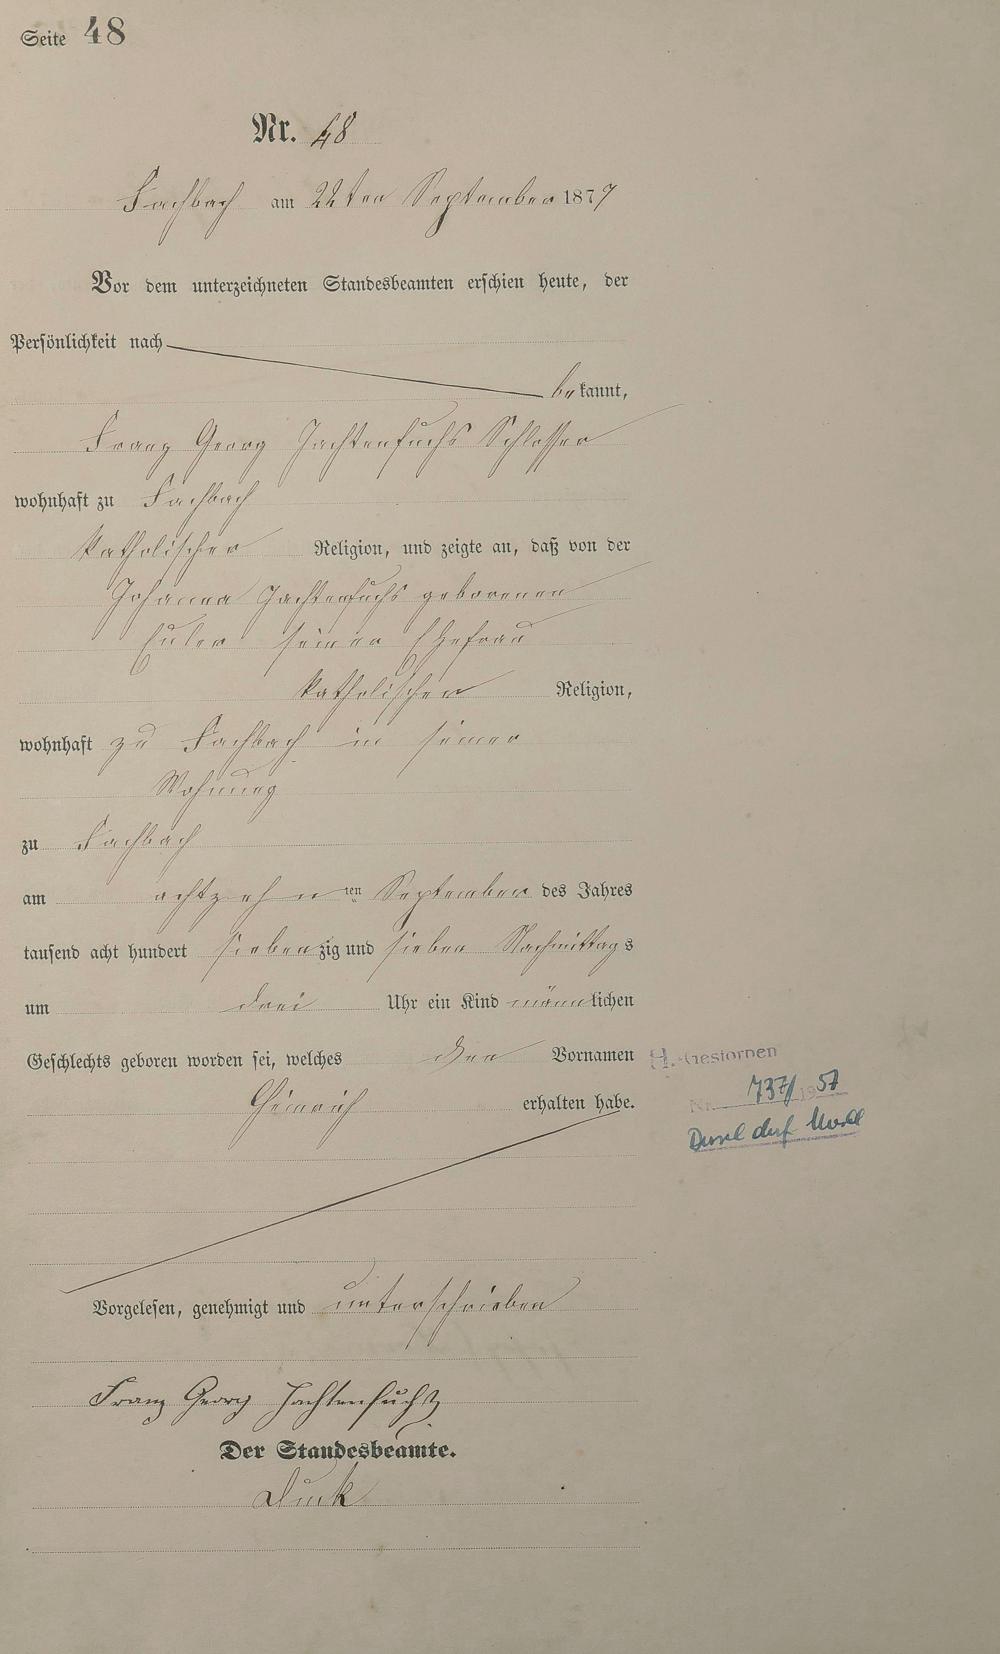 Seite 48
Nr. 48
Fachbach am 22ten September 1877
Vor dem unterzeichneten Standesbeamten erschien heute, der
Persönlichkeit nach
bekannt,
Franz Georg Jachtenfuchs Schlosser
wohnhaft zu Fachbach
katholischer Religion, und zeigte an, daß von der
Johanna Jachtenfuchs geborenen
Euler seiner Ehefrau
katholischer Religion,
wohnhaft zu Fachbach in seiner
Wohnung
zu Fachbach
am achtzehnten September des Jahres
tausend acht hundert siebenzig und sieben Nachmittags
um drei Uhr ein Kind männlichen
Geschlechts geboren worden sei, welches den Vornamen
Heinrich erhalten habe.
H. Gestorben
Nr. 737/1957
Vorgelesen, genehmigt und unterschrieben
Franz Georg Jachtenfuchs
Der Standesbeamte.